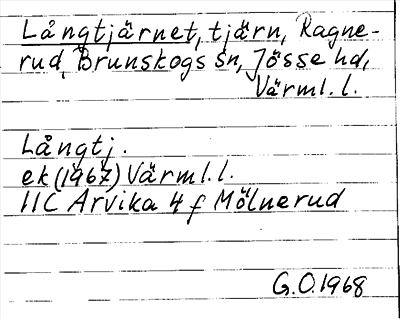 Långtjärnet, tjärn, Ragne-
rud, Brunskogs sn, Jösse hd,
Värml. l.
Långtj.
ek (1967) Värml. l.
11C Arvika 4 f Mölnerud
G.O. 1968